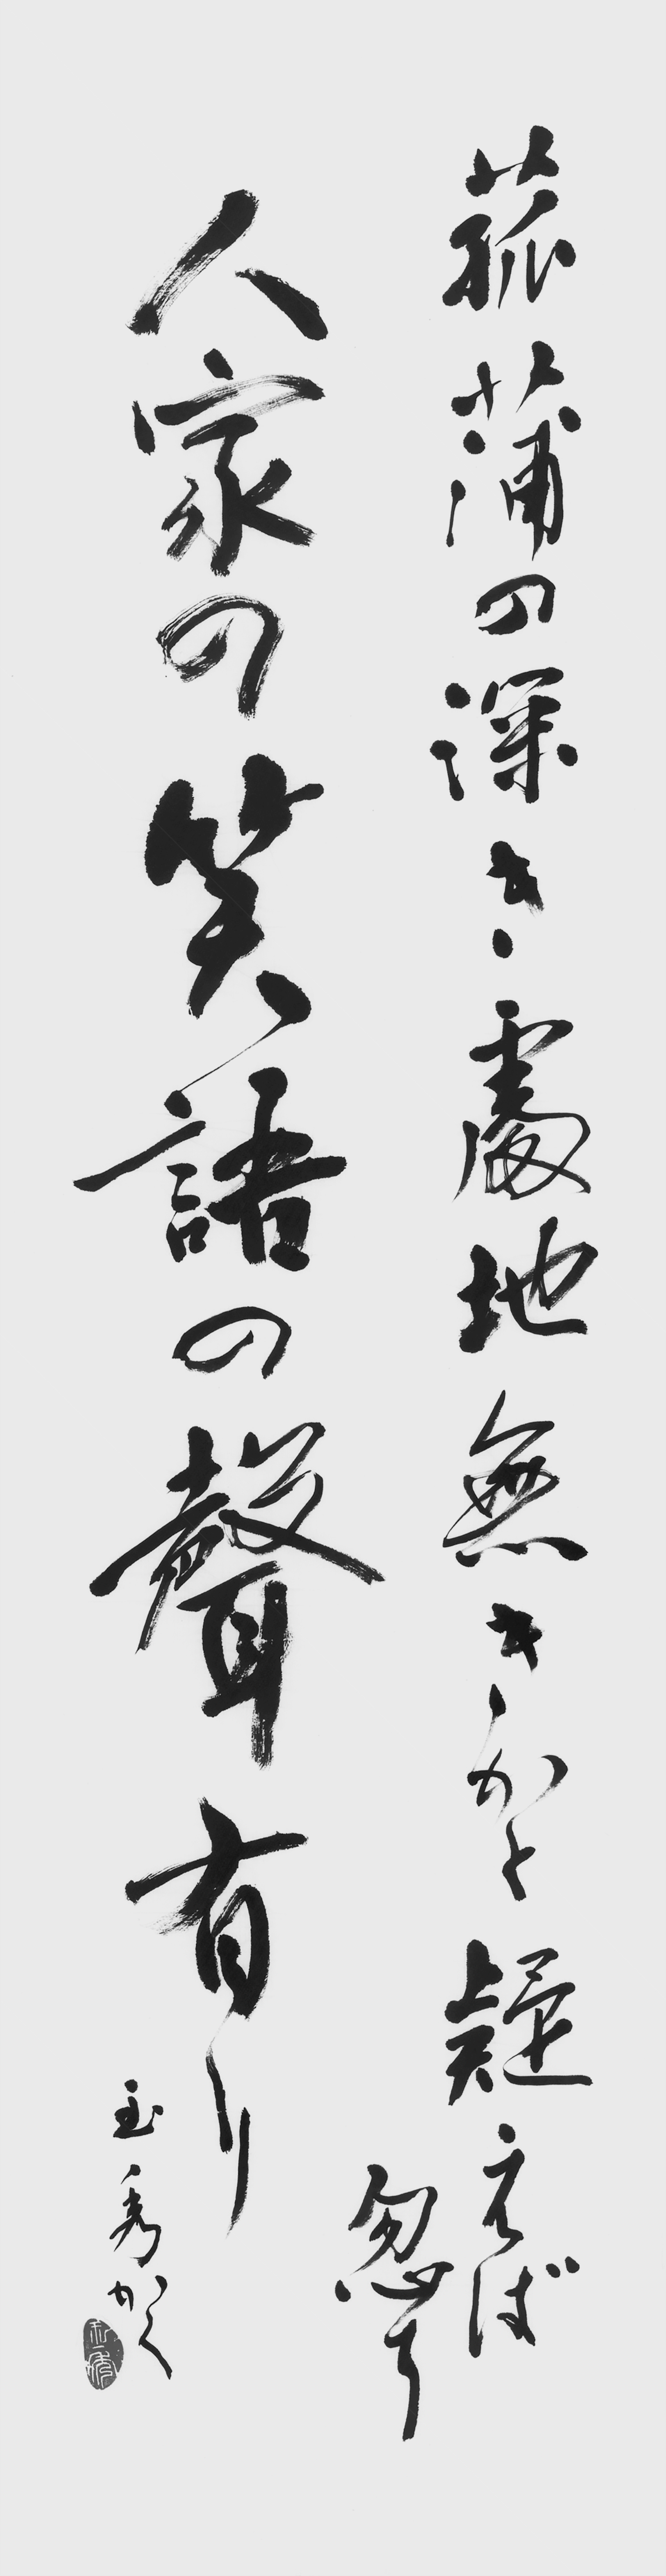 菰蒲の深き處地無きかと疑えば
忽ち
人家の笑語の聲有り
玉秀かく